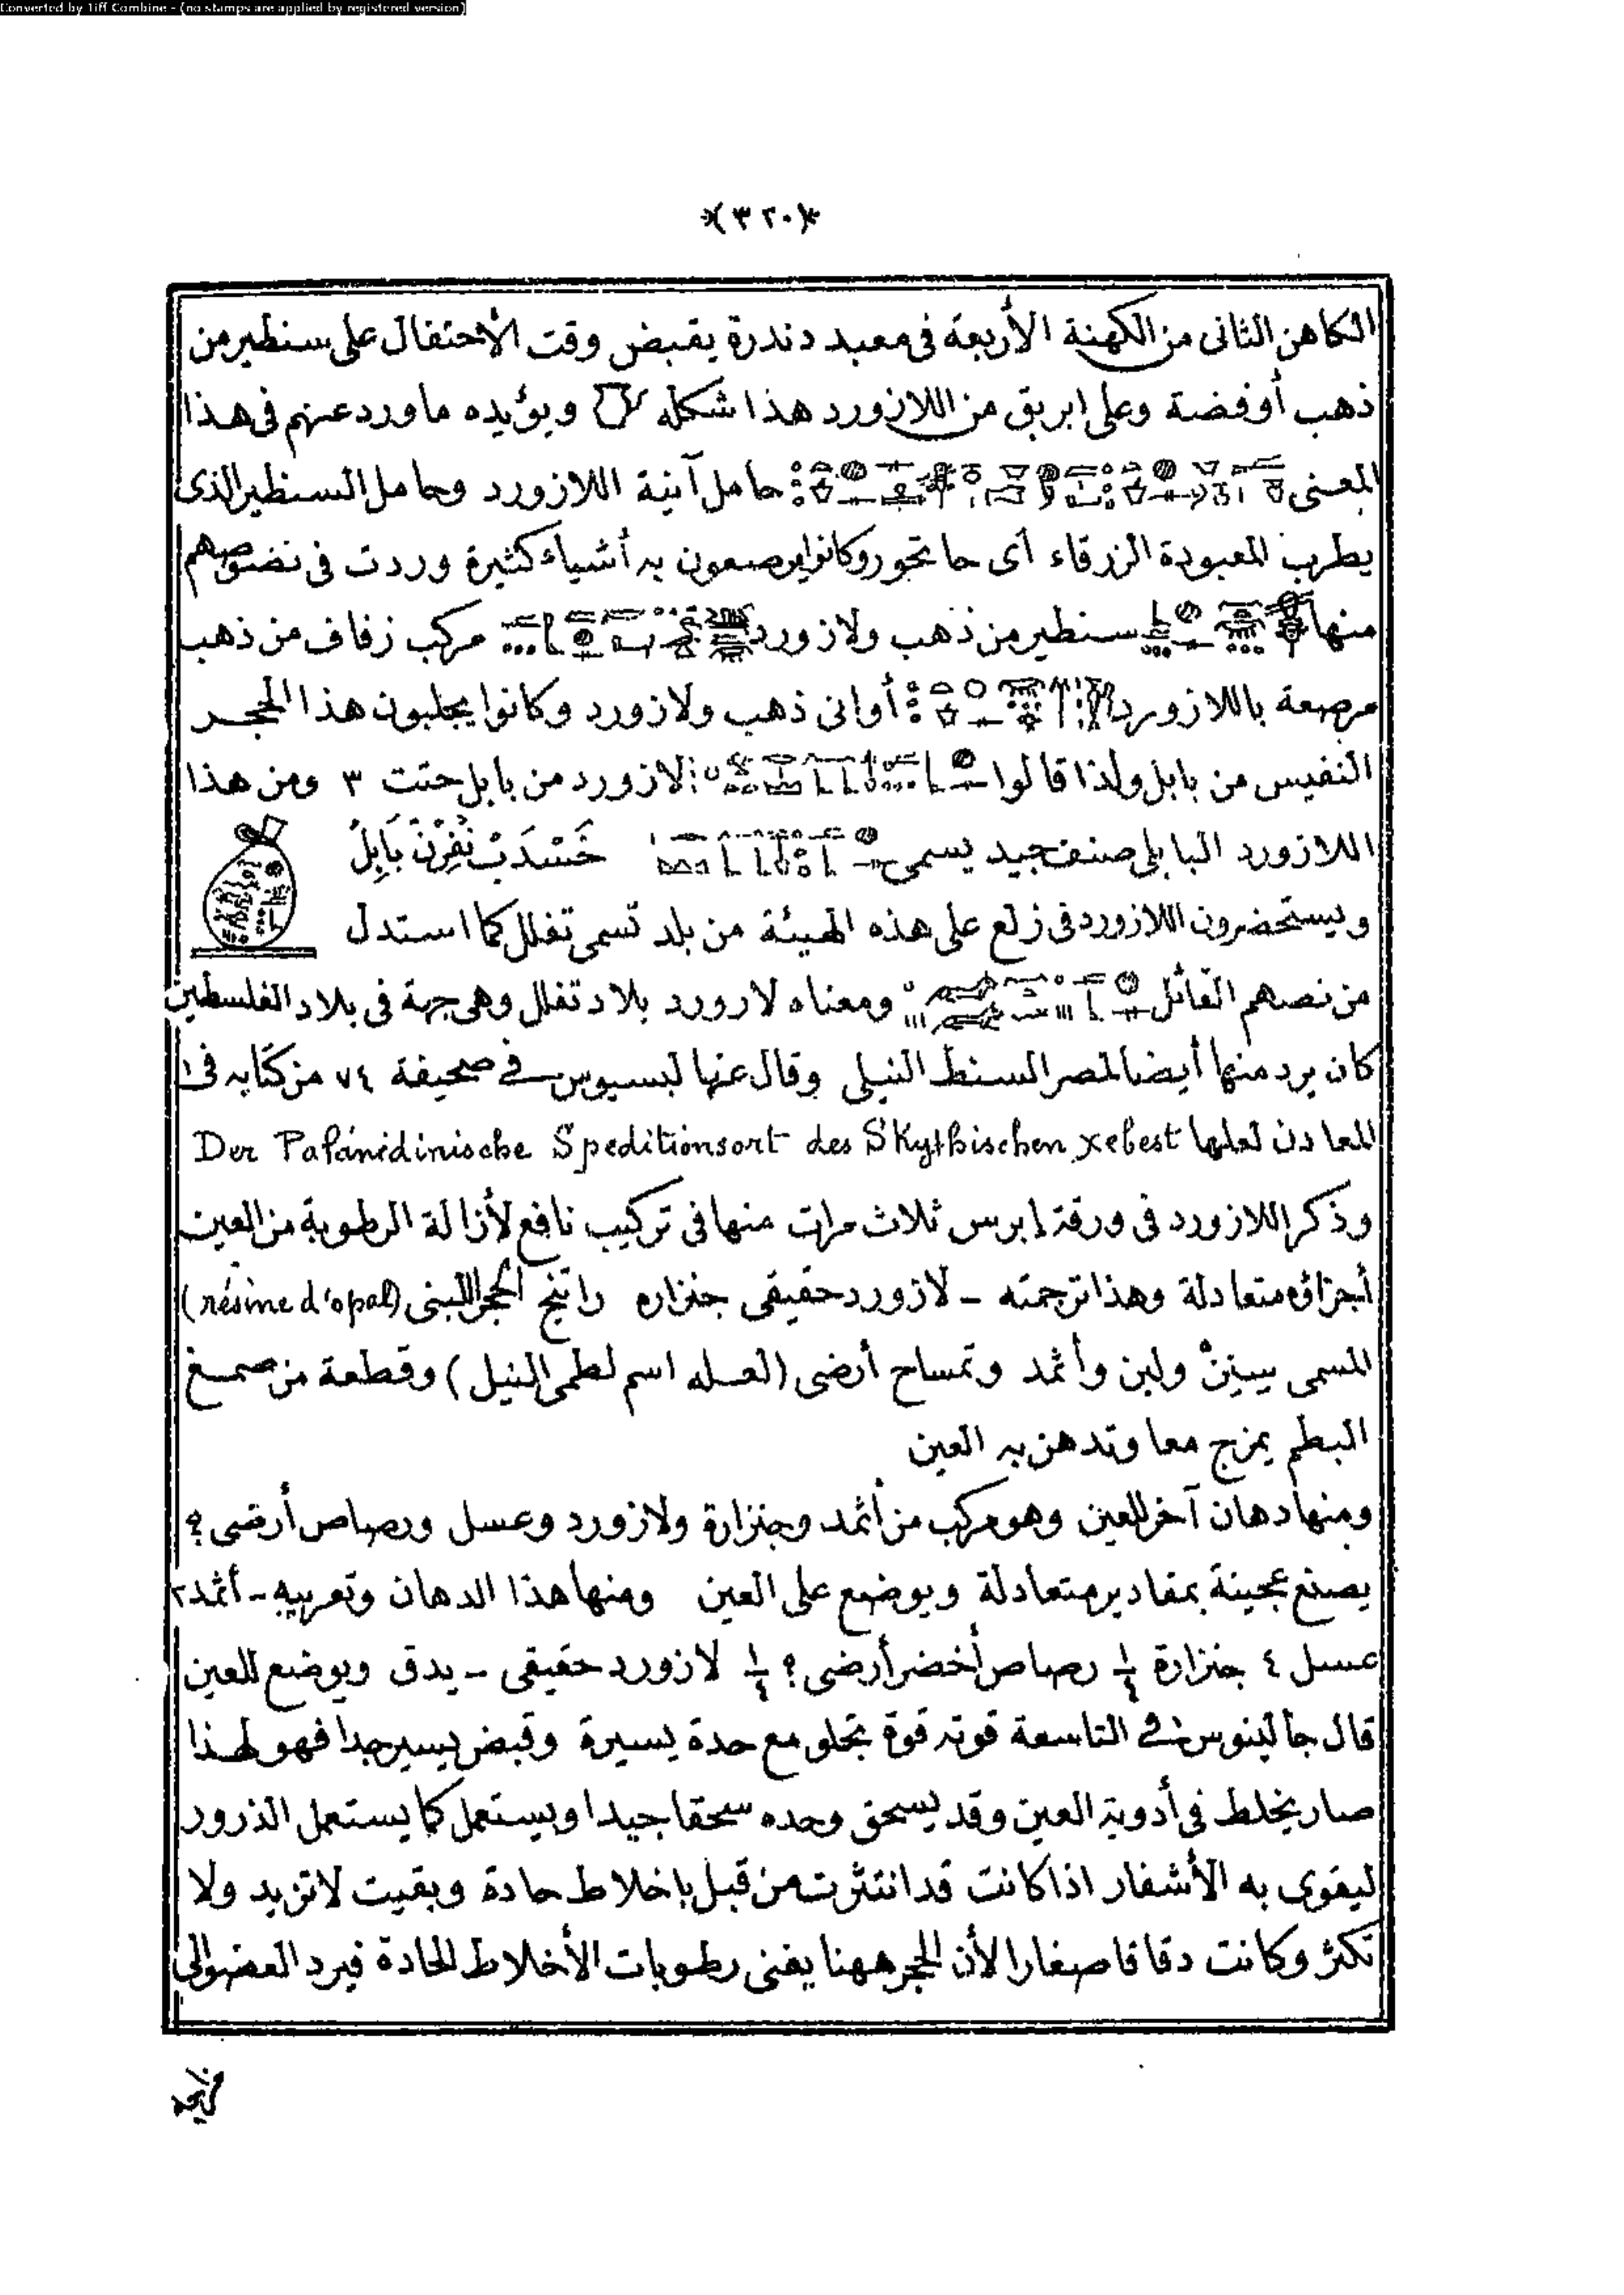 Converted by Tiff Combine - (no stamps are applied by registered version)
*(٣٢٠)*
الكاهن الثانى من الكهنة الأربعة فى معبد دندرة يقبض وقت الأحتفال على سنطير من
ذهب أوفضة وعلى ابريق من اللازورد هذا شكله ويؤيده ماورد عنهم فى هذا
المعنى حامل آنية اللازورد وحامل السنطير الذى
يطرب المعبودة الزرقاء أى حاتحور وكانوا يرصعون به أشياء كثيرة وردت فى نصوصهم
منها سنطير من ذهب ولازورد مركب زفاف من ذهب
مرصعة باللازورد أوانى ذهب ولازورد وكانوا يجلبون هذا الحجر
النفيس من بابل ولذا قالوا لازورد من بابل حتت ٣ ومن هذا
اللازورد البابلى صنف جيد يسمى خَسْدَبْ نِفِرْنْ بَابِلْ
ويستحضرون اللازورد فى زلع على هذه الهيئة من بلد تسمى تفلل كما استدل
من نصهم القائل ومعناه لازورد بلاد تفلل وهى جهة فى بلاد الفلسطين
كان يرد منها أيضا لمصر السنط النيلى وقال عنها لبسيوس فى صحيفة ٧٤ من كتابه فى
المعادن لعلها Der Palänidinische Speditionsort des Skythischen xebest
وذكر اللازورد فى ورقة ابرس ثلاث مرات منها فى تركيب نافع لأزالة الرطوبة من العين
أجزاؤه متعادلة وهذا ترجمته - لازورد حقيقى جنزاره راتنج الحجر اللبنى (résine d'opal)
المسمى ولبن وأثمد وتمساح أرضى (لعله اسم لطمى النيل) وقطعة من صمغ
البطم يمزج معا وتدهن به العين
ومنها دهان آخر للعين وهو مركب من أثمد وجنزارة ولازورد وعسل ورصاص أرضى؟
يصنع عجينة بمقادير متعادلة ويوضع على العين ومنها هذا الدهان وتعريبه - أثمد ٢
عسل ٤ جنزارة ¼ رصاص أخضر أرضى؟ ¼ لازورد حقيقى - يدق ويوضع للعين
قال جالينوس فى التاسعة قوته قوة تجلو مع حدة يسيرة وقبض يسير جدا فهو لهذا
صار يخلط فى أدوية العين وقد يسحق وحده سحقا جيدا ويستعمل كما يستعمل الذرور
ليقوى به الأشفار اذا كانت قد انتثرت من قبل باخلاط حادة وبقيت لاتزيد ولا
تكثر وكانت دقاقا صغارا لأن الحجر ههنا يفنى رطوبات الأخلاط الحادة فيرد العضو الى